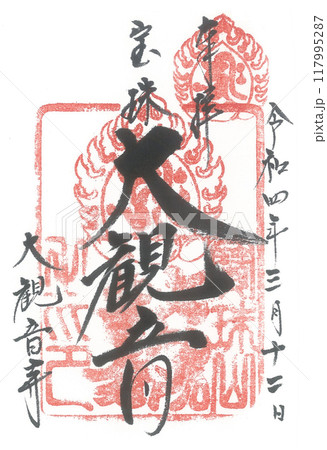 奉拝
令和四年三月十二日
宝珠
大観音
大観音寺
PIXTA
pixta.jp - 117995287